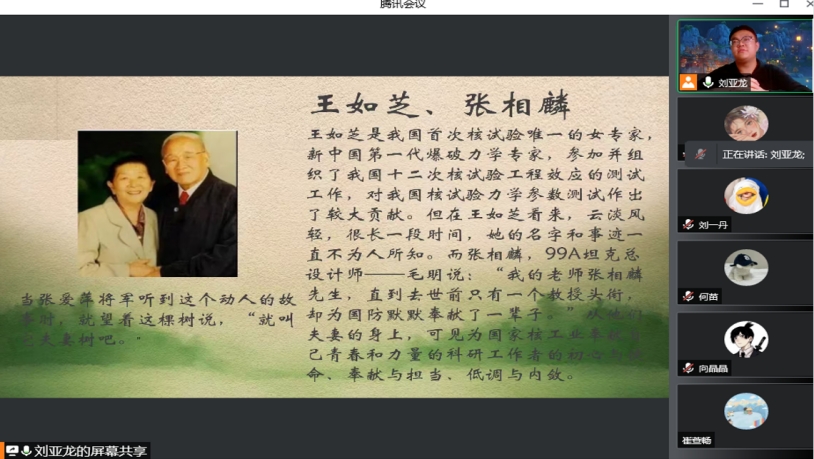 腾讯会议
王如芝、张相麟
王如芝是我国首次核试验唯一的女专家，
新中国第一代爆破力学专家，参加并组
织了我国十二次核试验工程效应的测试
工作，对我国核试验力学参数测试作出
了较大贡献。但在王如芝看来，云淡风
轻，很长一段时间，她的名字和事迹一
直不为人所知。而张相麟，99A坦克总
设计师——毛明说：“我的老师张相麟
先生，直到去世前只有一个教授头衔，
却为国防默默奉献了一辈子。”从他们
夫妻的身上，可见为国家核工业奉献自
己青春和力量的科研工作者的初心与使
命、奉献与担当、低调与内敛。
当张爱萍将军听到这个动人的故
事时，就望着这棵树说，“就叫
它夫妻树吧。”
刘亚龙
正在讲话: 刘亚龙;
刘一丹
何苗
向晶晶
崔萱畅
刘亚龙的屏幕共享